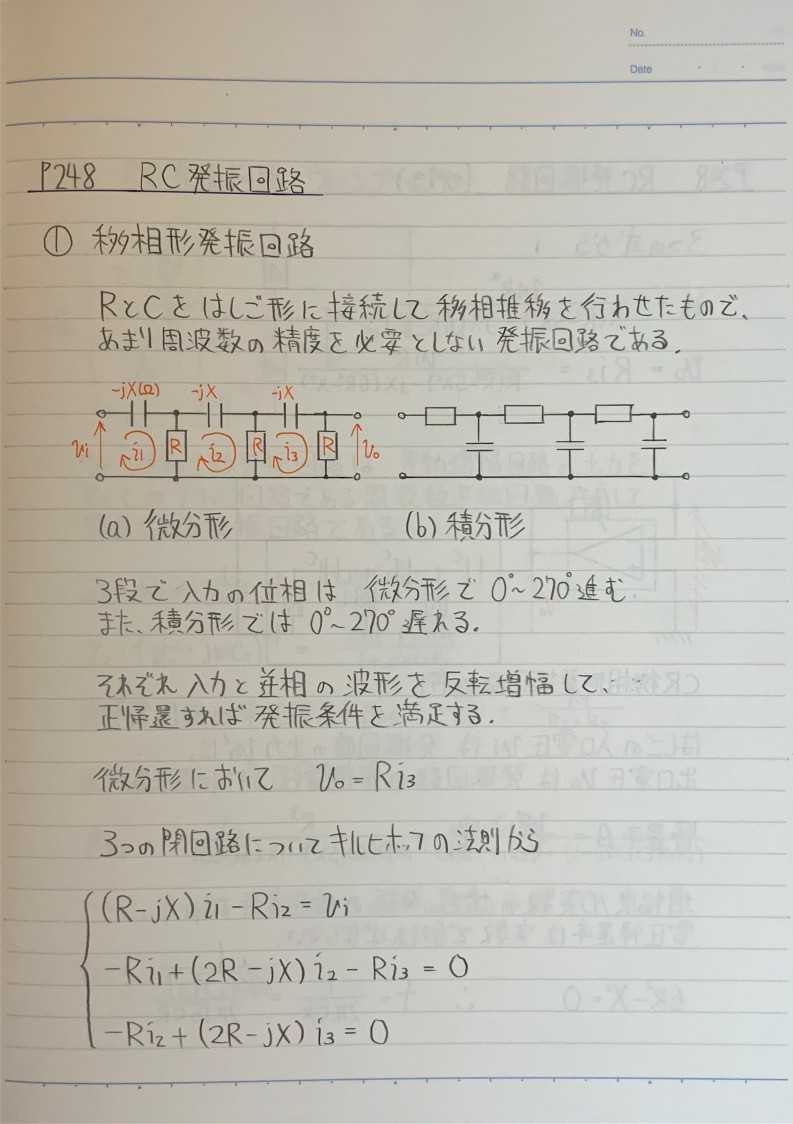 No.
Date
P248 RC発振回路
① 移相形発振回路
RとCをはしご形に接続して移相推移を行わせたもので、
あまり周波数の精度を必要としない発振回路である.
-jX(Ω) -jX -jX
vi i1 R i2 R i3 R vo
(a) 微分形 (b) 積分形
3段で入力の位相は 微分形で 0°~270°進む
また、積分形では 0°~270°遅れる.
それぞれ入力と並相の波形を反転増幅して、
正帰還すれば発振条件を満足する.
微分形において vo = Ri3
3つの閉回路についてキルヒホッフの法則から
(R-jX) i1 - Ri2 = vi
-Ri1 + (2R-jX) i2 - Ri3 = 0
-Ri2 + (2R-jX) i3 = 0